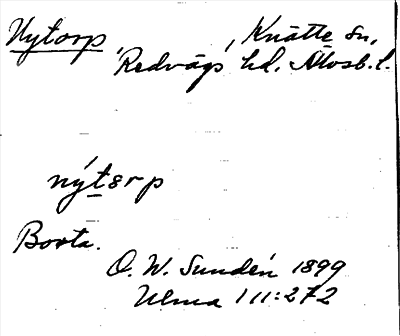 Nytorp, Knätte sn,
Redvägs hd. Älvsb. l.
nýtorp
Borta.
O. W. Sundén 1899
Ulma 111:272